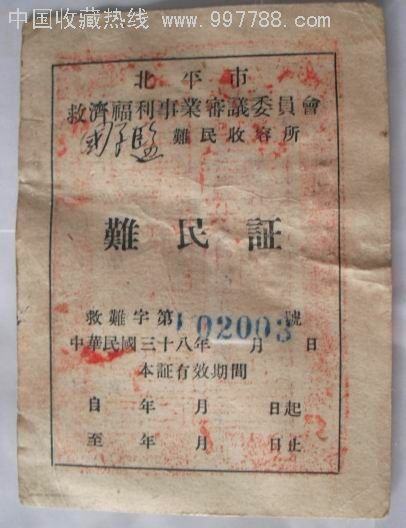 中国收藏热线：www.997788.com
北平市
救濟福利事業審議委員會
國子監 難民收容所
難民証
救難字第 02003 號
中華民國三十八年 月 日
本証有效期間
自 年 月 日起
至 年 月 日止